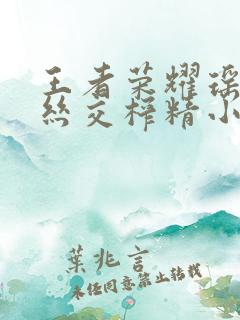 王者荣耀瑶
丝交榨精小
葉兆言
未经同意禁止转载